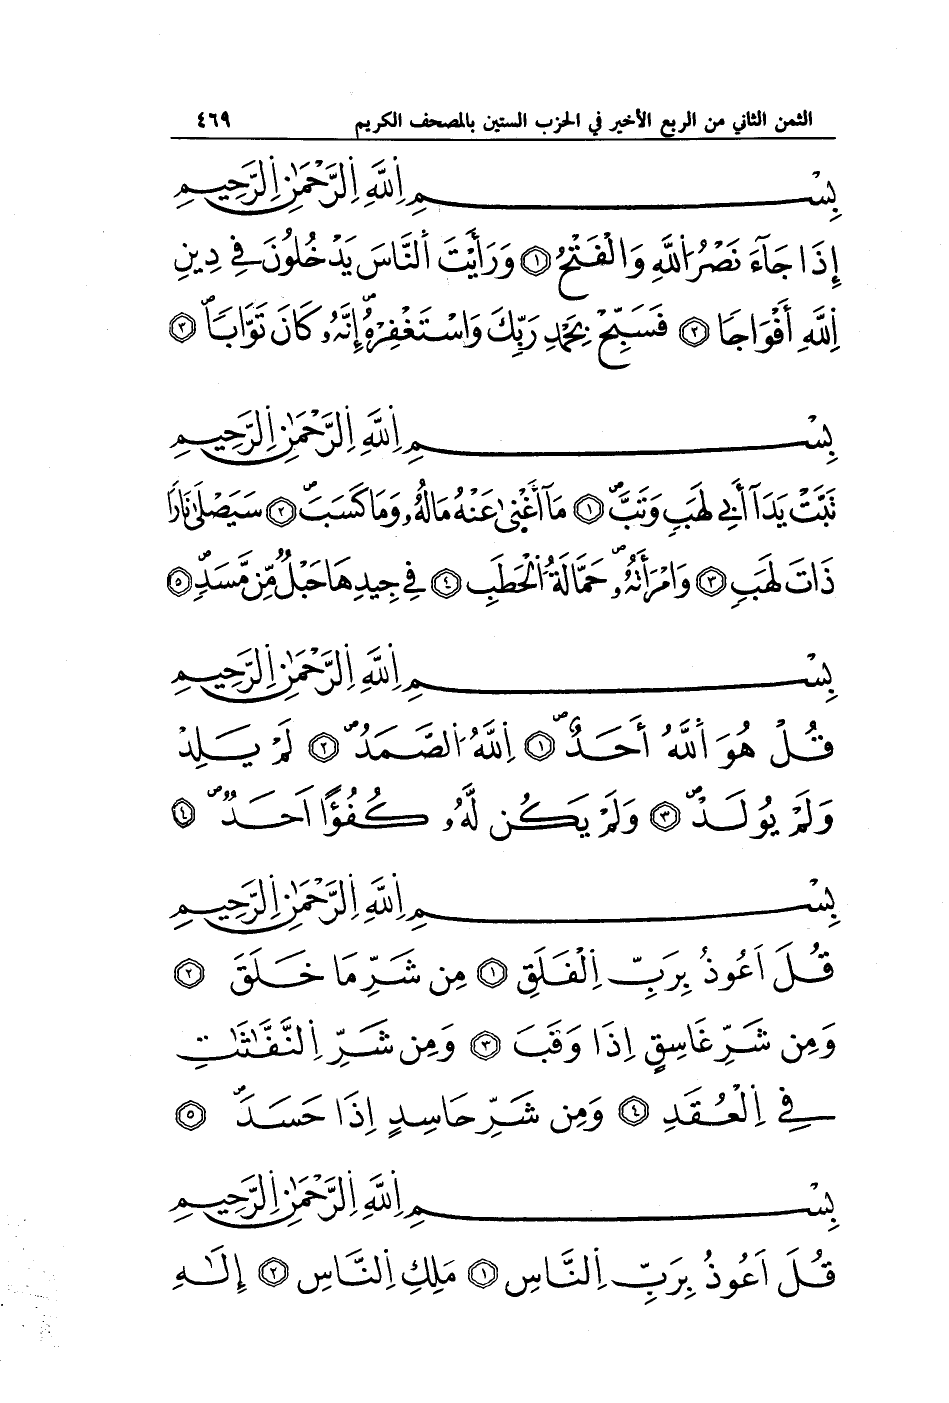 الثمن الثاني من الربع الأخير في الحزب الستين بالمصحف الكريم ٤٦٩
بِسْمِ اِللَّهِ اِلرَّحْمَٰنِ اِلرَّحِيمِ
إِذَا جَآءَ نَصْرُ اُللَّهِ وَالْفَتْحُ ١ وَرَأَيْتَ اَلنَّاسَ يَدْخُلُونَ فِي دِينِ
اِللَّهِ أَفْوَاجًا ٢ فَسَبِّحْ بِحَمْدِ رَبِّكَ وَاسْتَغْفِرْهُۖ إِنَّهُۥ كَانَ تَوَّابَاۖ ٣
بِسْمِ اِللَّهِ اِلرَّحْمَٰنِ اِلرَّحِيمِ
تَبَّتْ يَدَآ أَبِي لَهَبٍ وَتَبَّۖ ١ مَآ أَغْنَىٰ عَنْهُ مَالُهُۥ وَمَا كَسَبَۖ ٢ سَيَصْلَىٰ نَارًا
ذَاتَ لَهَبٍ ٣ وَامْرَأَتُهُۥۖ حَمَّالَةُ اُلْحَطَبِ ٤ فِي جِيدِهَا حَبْلٌ مِّن مَّسَدٍۖ ٥
بِسْمِ اِللَّهِ اِلرَّحْمَٰنِ اِلرَّحِيمِ
قُلْ هُوَ اَللَّهُ أَحَدٌۖ ١ اِللَّهُ اُلصَّمَدُۖ ٢ لَمْ يَلِدْ
وَلَمْ يُولَدْۖ ٣ وَلَمْ يَكُن لَّهُۥ كُفُؤًا اَحَدٌۖ ٤
بِسْمِ اِللَّهِ اِلرَّحْمَٰنِ اِلرَّحِيمِ
قُلَ اَعُوذُ بِرَبِّ اِلْفَلَقِ ١ مِن شَرِّ مَا خَلَقَ ٢
وَمِن شَرِّ غَاسِقٍ إِذَا وَقَبَ ٣ وَمِن شَرِّ اِلنَّفَّٰثَٰتِ
فِي اِلْعُقَدِ ٤ وَمِن شَرِّ حَاسِدٍ إِذَا حَسَدَۖ ٥
بِسْمِ اِللَّهِ اِلرَّحْمَٰنِ اِلرَّحِيمِ
قُلَ اَعُوذُ بِرَبِّ اِلنَّاسِ ١ مَلِكِ اِلنَّاسِ ٢ إِلَٰهِ